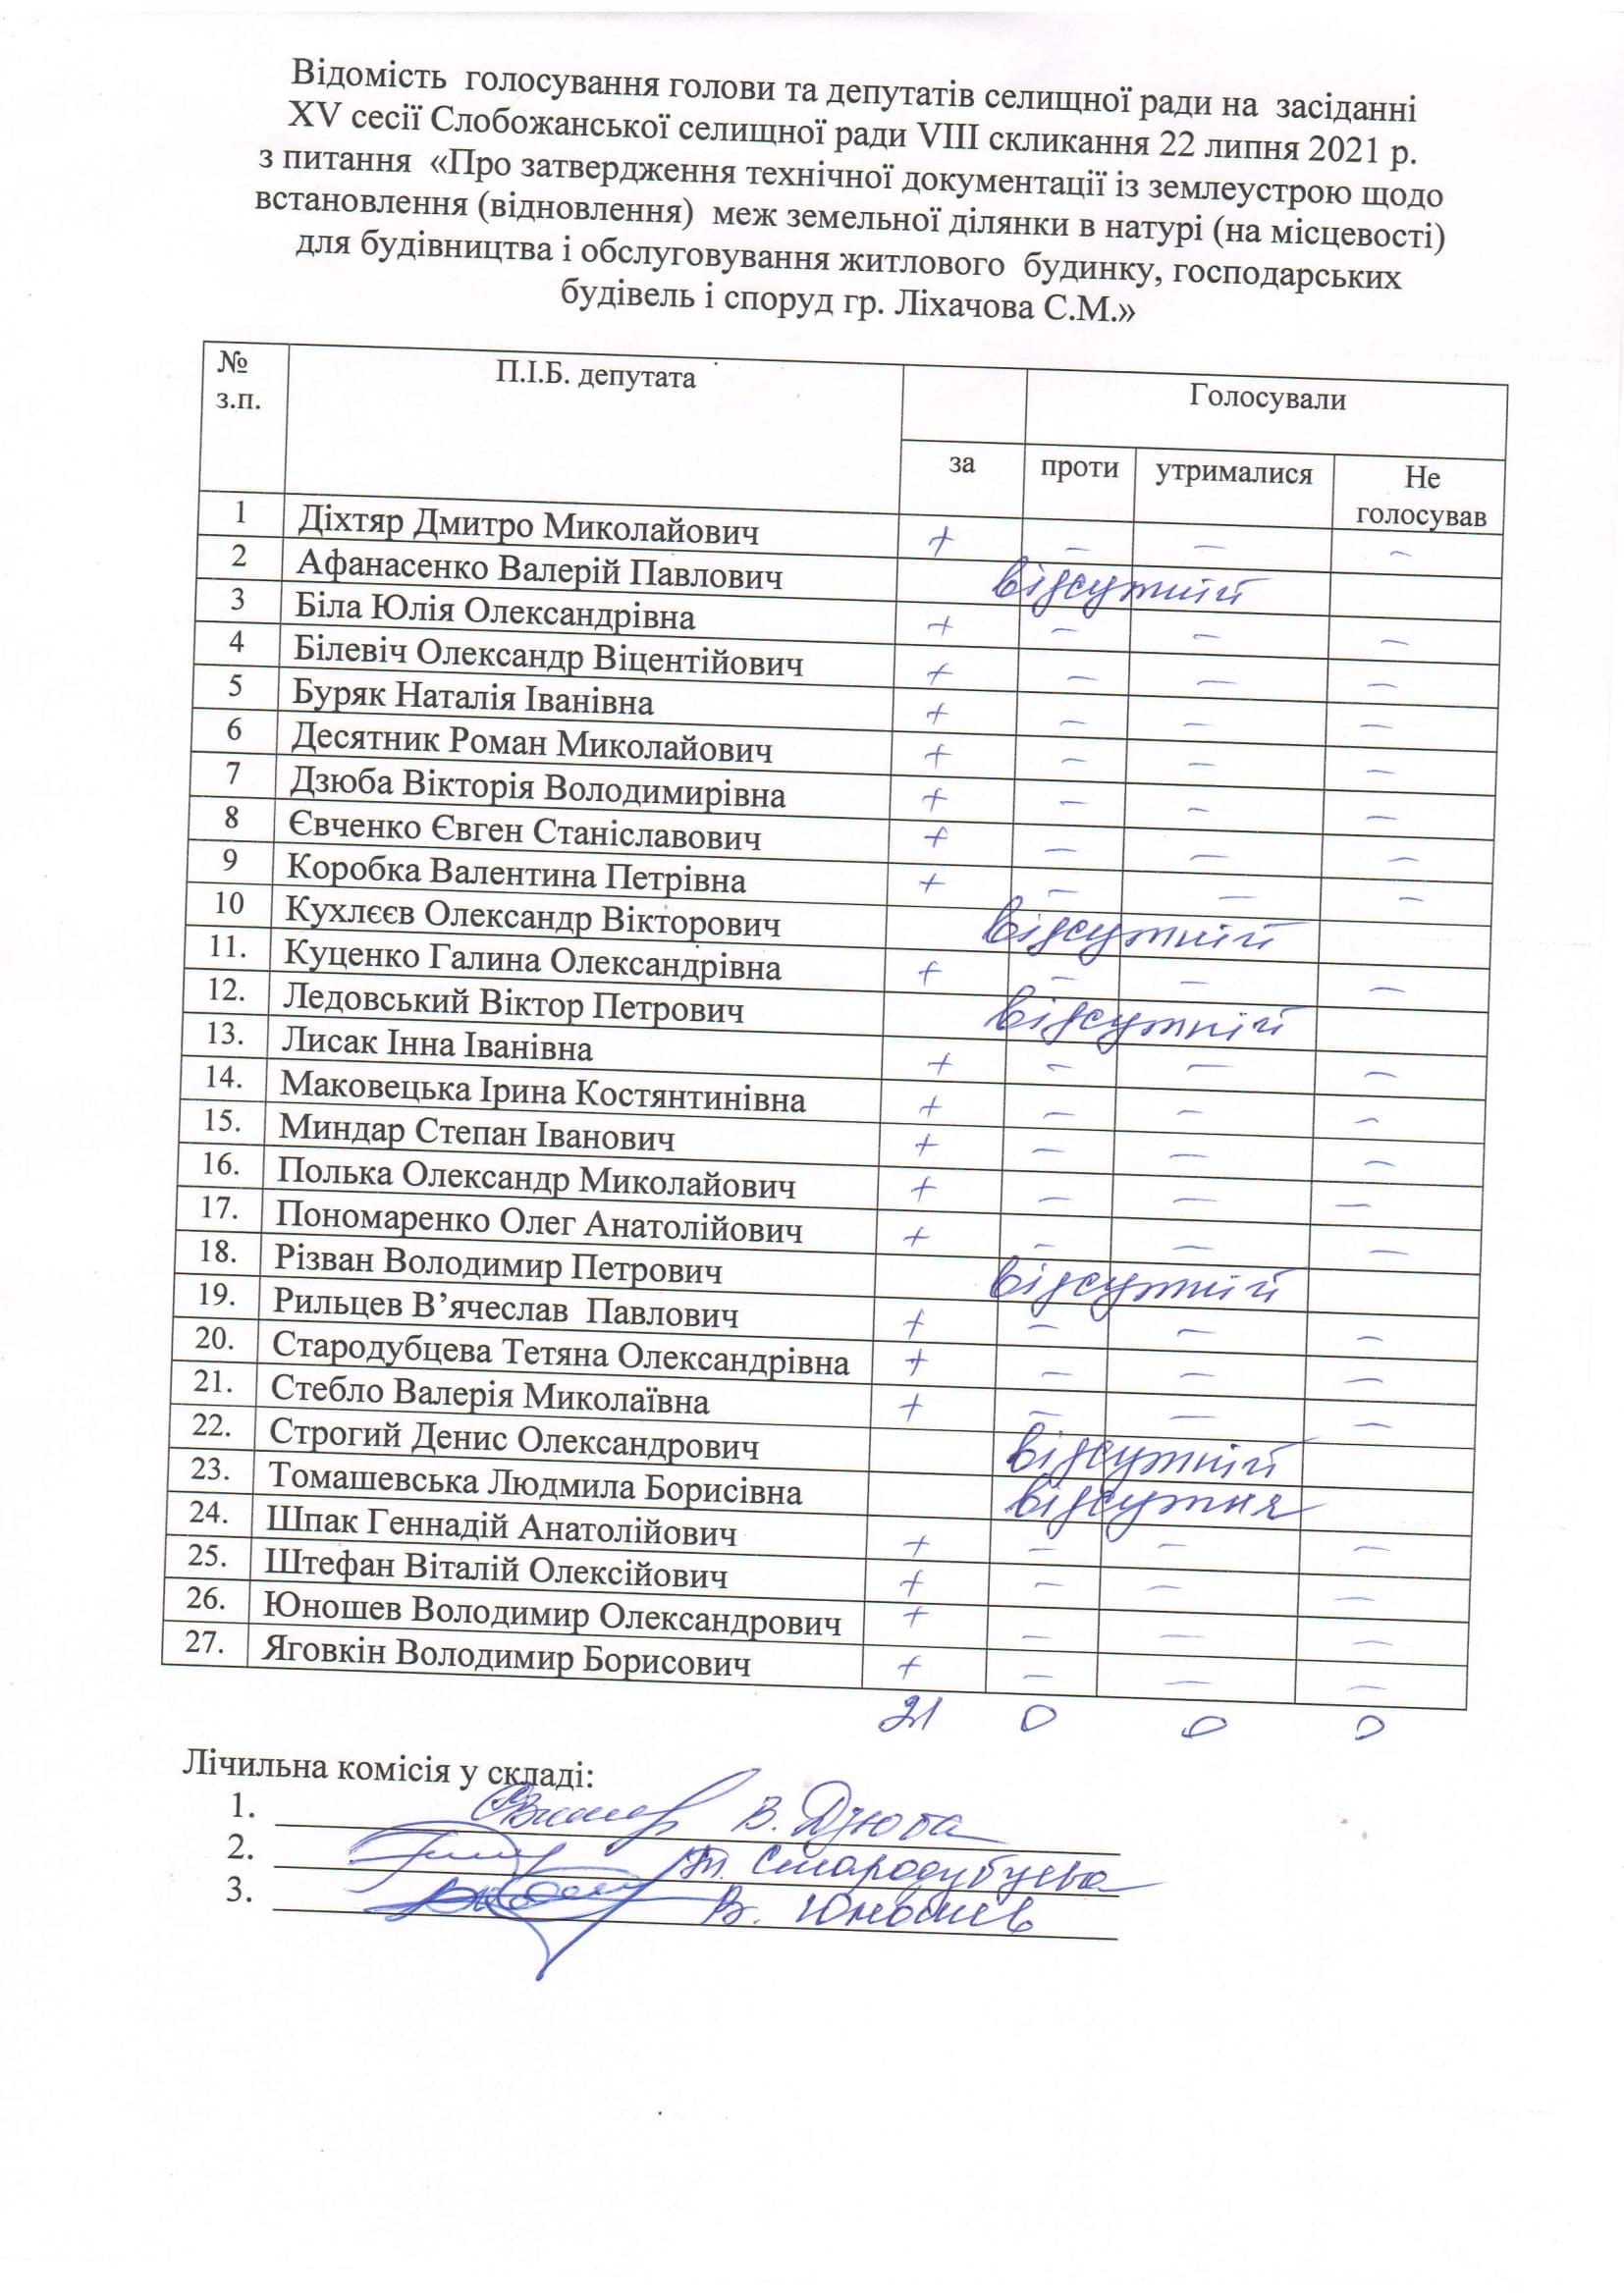 Відомість голосування голови та депутатів селищної ради на засіданні
XV сесії Слобожанської селищної ради VIII скликання 22 липня 2021 р.
з питання «Про затвердження технічної документації із землеустрою щодо
встановлення (відновлення) меж земельної ділянки в натурі (на місцевості)
для будівництва і обслуговування житлового будинку, господарських
будівель і споруд гр. Ліхачова С.М.»
№ з.п. П.І.Б. депутата Голосували
за проти утрималися Не голосував
1 Діхтяр Дмитро Миколайович + – – –
2 Афанасенко Валерій Павлович відсутній
3 Біла Юлія Олександрівна + – – –
4 Білевіч Олександр Віцентійович + – – –
5 Буряк Наталія Іванівна + – – –
6 Десятник Роман Миколайович + – – –
7 Дзюба Вікторія Володимирівна + – – –
8 Євченко Євген Станіславович + – – –
9 Коробка Валентина Петрівна + – – –
10 Кухлєєв Олександр Вікторович відсутній
11. Куценко Галина Олександрівна + – – –
12. Ледовський Віктор Петрович відсутній
13. Лисак Інна Іванівна + – – –
14. Маковецька Ірина Костянтинівна + – – –
15. Миндар Степан Іванович + – – –
16. Полька Олександр Миколайович + – – –
17. Пономаренко Олег Анатолійович + – – –
18. Різван Володимир Петрович відсутній
19. Рильцев В’ячеслав Павлович + – – –
20. Стародубцева Тетяна Олександрівна + – – –
21. Стебло Валерія Миколаївна + – – –
22. Строгий Денис Олександрович відсутній
23. Томашевська Людмила Борисівна відсутня
24. Шпак Геннадій Анатолійович + – – –
25. Штефан Віталій Олексійович + – – –
26. Юношев Володимир Олександрович + – – –
27. Яговкін Володимир Борисович + – – –
21 0 0 0
Лічильна комісія у складі:
1. В. Дзюба
2. Т. Стародубцева
3. В. Юношев